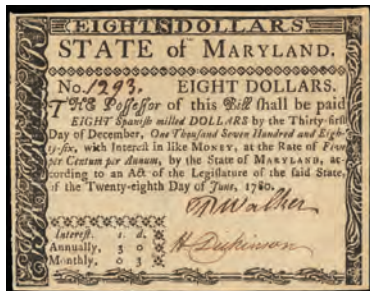 EIGHT DOLLARS
STATE of MARYLAND.
No. 1293. EIGHT DOLLARS.
THE Possessor of this Bill shall be paid
EIGHT Spanish milled DOLLARS by the Thirty-first
Day of December, One Thousand Seven Hundred and Eigh-
ty-six, with Interest in like MONEY, at the Rate of Five
per Centum per Annum, by the State of MARYLAND, ac-
cording to an Act of the Legislature of the said State,
of the Twenty-eighth Day of June, 1780.
Walker
Interest. s. d.
H Dickinson
Annually, 3 0
Monthly, 0 3